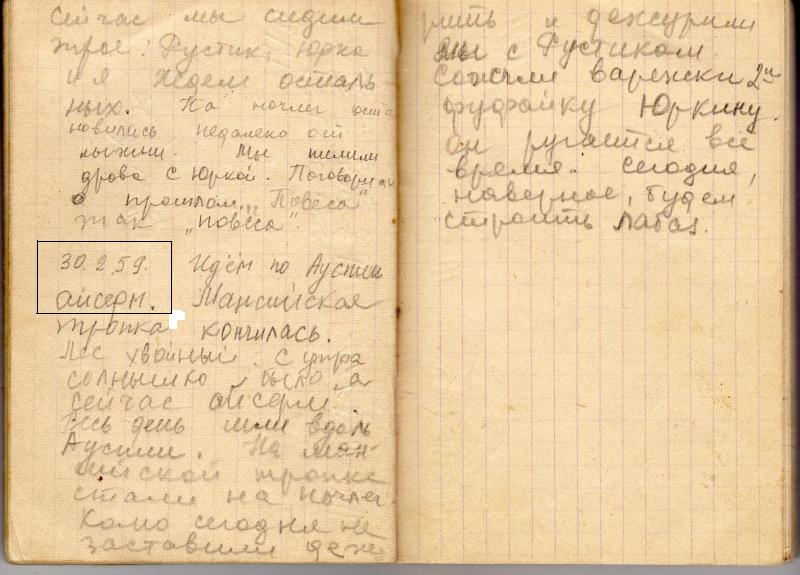 Сейчас мы сидим
трое: Рустик, Юрка
и я. Ждем осталь-
ных. На ночлег оста
новились недалеко от
лыжни. Мы пилили
дрова с Юркой. Поговорили
о прошлом.
так „повеса".
30.2.59. Идём по Ауспии
айсерм. Мансийская
тропка кончилась.
Лес хвойный. С утра
солнышко было, а
сейчас айсерм.
Весь день шли вдоль
Ауспии. На ман-
сийской тропке
стали на ночлег.
Колю сегодня не
заставили деж
рить и дежурили
мы с Рустиком.
Сожгли варежки и 2ю
фуфайку Юркину.
он ругается все
время. Сегодня,
наверное, будем
строить лабаз.